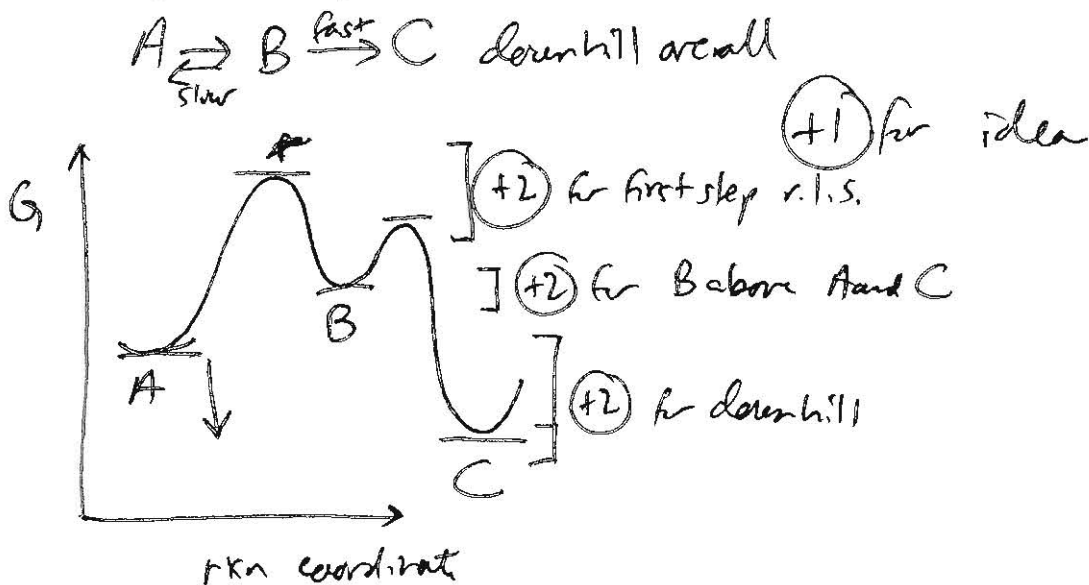 A ⇌ B fast→ C downhill overall
slow
+1 for idea
‡
G
+2 for first step r.l.s.
+2 for B above A and C
B
A
+2 for downhill
C
rxn coordinate